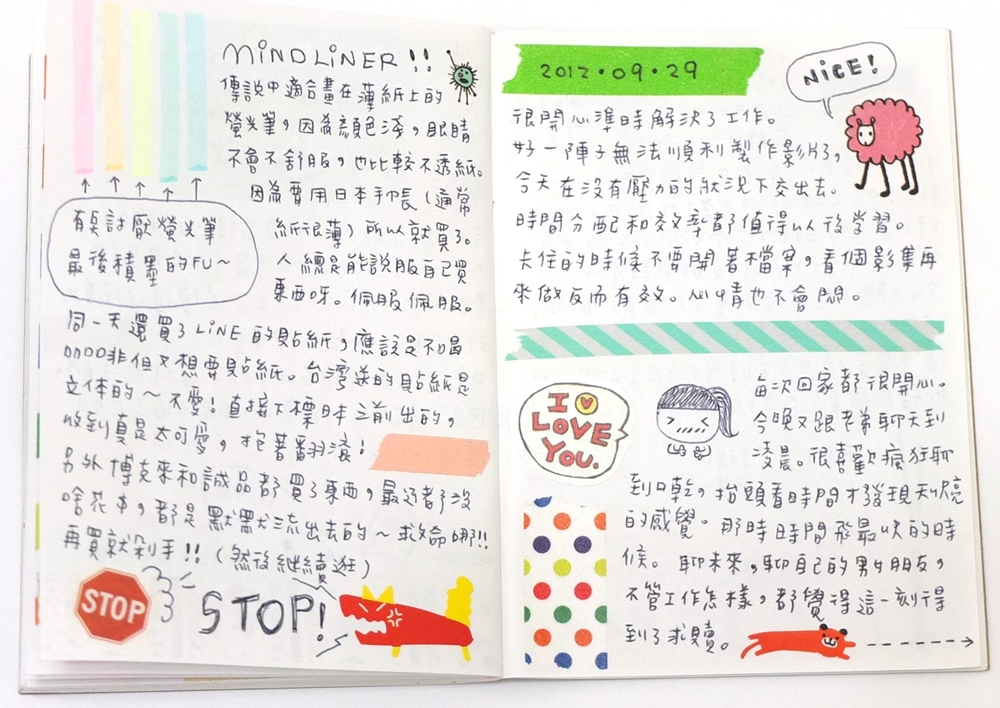 MiNDLiNER!!
傳說中適合畫在薄紙上的
螢光筆,因為顏色淺,眼睛
不會不舒服,也比較不透紙。
因為費用日本手帳(通常
紙很薄)所以就買了。
人總是能說服自己買
東西呀。佩服佩服。
有夠討厭螢光筆
最後積墨的FU~
同一天還買了LiNE的貼紙,應該是不
非但又想要貼紙。台灣送的貼紙是
立体的~不愛!直接下標日本之前出的,
收到真是太可愛,抱著翻滾!
另外博客來和誠品都買了東西,最近都沒
啥花車,都是默默流出去的~求命哪!!
再買就剁手!!(然後繼續逛)
STOP
STOP!
2012・09・29
NiCE!
很開心準時解決了工作。
好一陣子無法順利製作影片了,
今天在沒有壓力的狀況下交出去。
時間分配和效率都值得以後學習。
卡住的時候不要開著檔案,看個影集再
來做反而有效。心情也不會悶。
I LOVE YOU.
每次回家都很開心。
今晚又跟老弟聊天到
凌晨。很喜歡瘋狂聊
到口乾,抬頭看時間才發現天快亮
的感覺。那時時間飛最快的時
候。聊未來,聊自己的男女朋友,
不管工作怎樣,都覺得這一刻得
到了求贖。